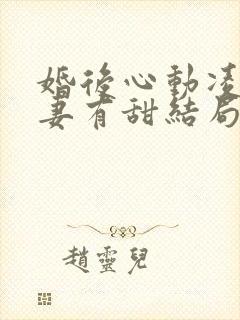 婚後心動凌
妻有甜結局
趙靈兒